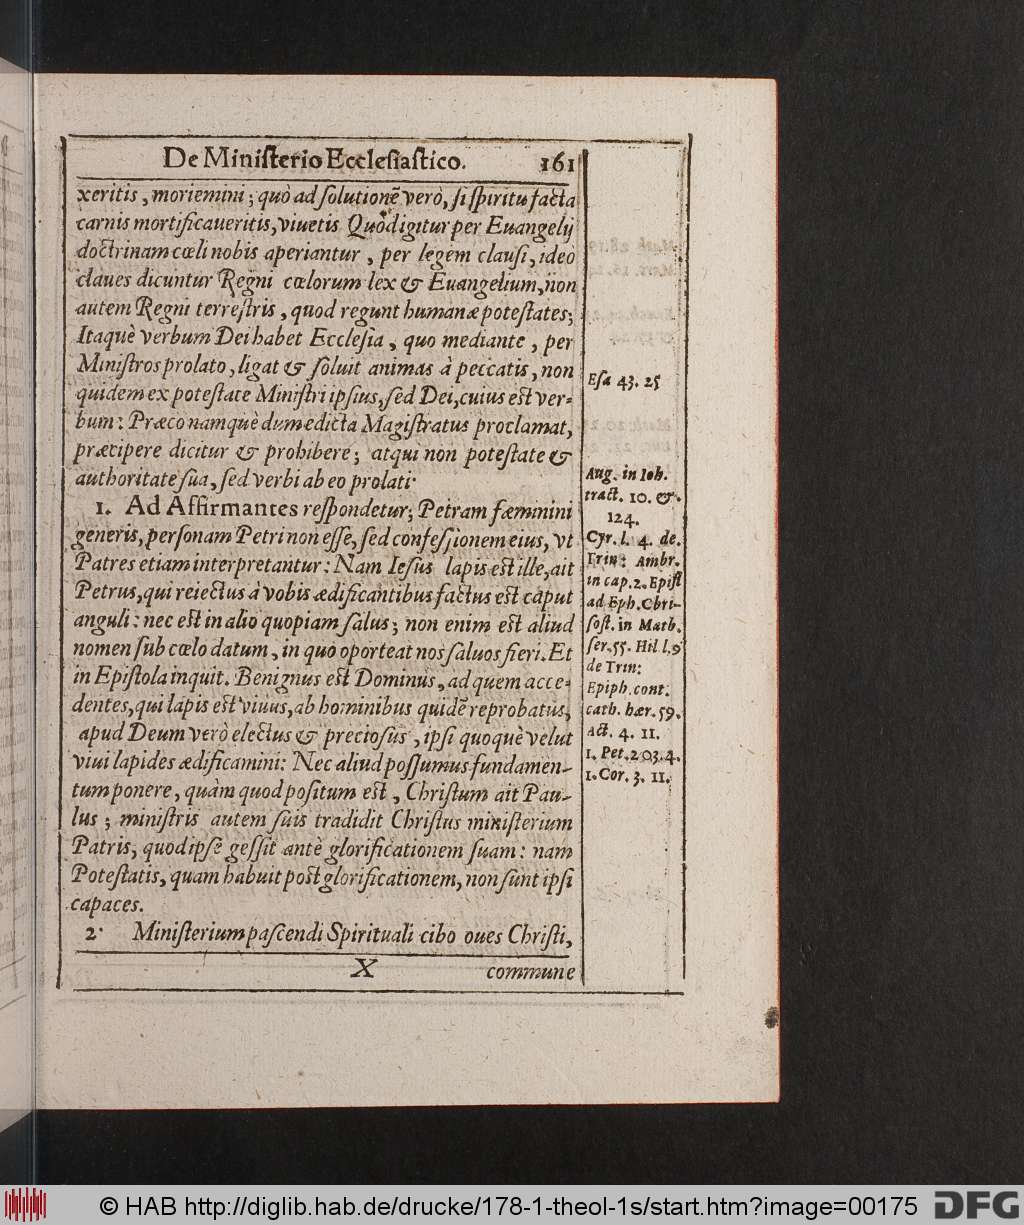 De Ministerio Ecclesiastico. 161
xeritis, moriemini; quò ad solutionẽ verò, si spiritu facta
carnis mortificaueritis, viuetis Quòd igitur per Euangelij
doctrinam cœli nobis aperiantur, per legem clausi, ideò
claues dicuntur Regni cœlorum lex & Euangelium, non
autem Regni terrestris, quod regunt humanæ potestates;
Itaquè verbum Dei habet Ecclesia, quo mediante, per
Ministros prolato, ligat & soluit animas à peccatis, non
quidem ex potestate Ministri ipsius, sed Dei, cuius est ver-
bum: Præco namquè dum edicta Magistratus proclamat,
præcipere dicitur & prohibere; atqui non potestate &
authoritate sua, sed verbi ab eo prolati·
1. Ad Affirmantes respondetur; Petram fæminini
generis, personam Petri non esse, sed confessionem eius, vt
Patres etiam interpretantur: Nam Iesus lapis est ille, ait
Petrus, qui reiectus à vobis ædificantibus factus est caput
anguli: nec est in alio quopiam salus; non enim est aliud
nomen sub cœlo datum, in quo oporteat nos saluos fieri. Et
in Epistola inquit. Benignus est Dominus, ad quem acce-
dentes, qui lapis est viuus, ab hominibus quidẽ reprobatus,
apud Deum verò electus & preciosus, ipsi quoquè velut
viui lapides ædificamini: Nec aliud possumus fundamen-
tum ponere, quàm quod positum est, Christum ait Pau-
lus; ministris autem suis tradidit Christus ministerium
Patris, quod ipse gessit antè glorificationem suam: nam
Potestatis, quam habuit post glorificationem, non sunt ipsi
capaces.
2· Ministerium pascendi Spirituali cibo oues Christi,
X commune
Esa 43. 25
Aug. in Ioh.
tract. 10. &.
124.
Cyr. l. 4. de.
Trin: Ambr.
in cap. 2. Epist
ad Eph. Chri-
sost. in Math.
ser. 55. Hil l. 9
de Trin:
Epiph. cont.
cath. hær. 59.
act. 4. 11.
1. Pet. 2 03. 4.
1. Cor. 3. 11.
© HAB http://diglib.hab.de/drucke/178-1-theol-1s/start.htm?image=00175 DFG